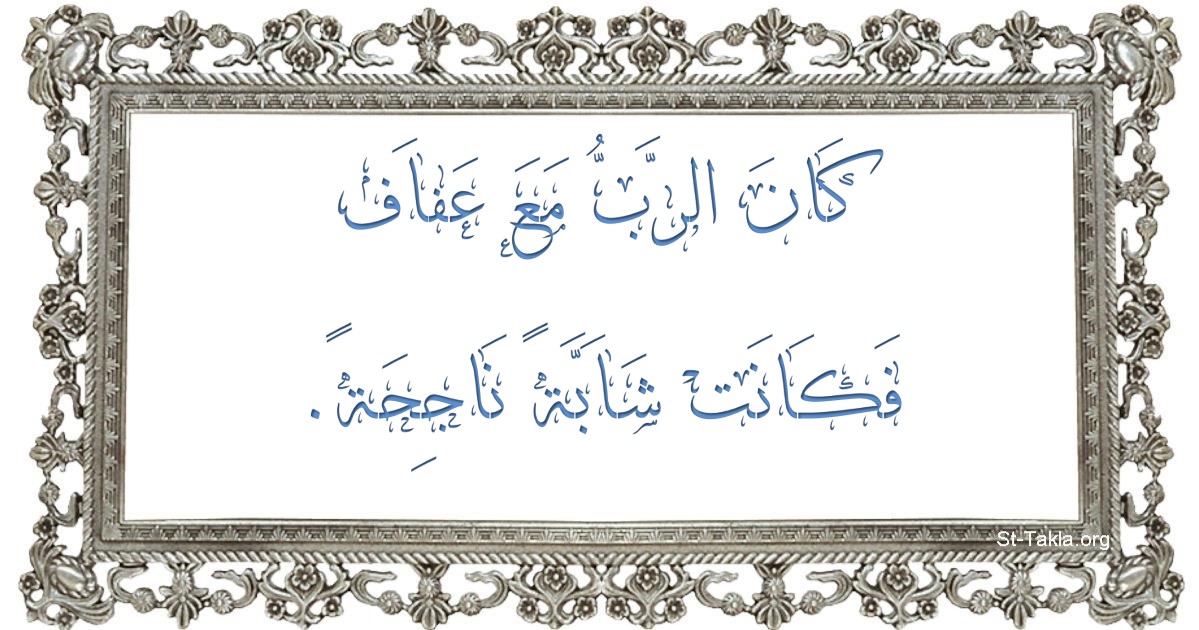 كَانَ الرَّبُّ مَعَ عَفَاف
فَكَانَت شَابَّةً نَاجِحَةً.
St-Takla.org